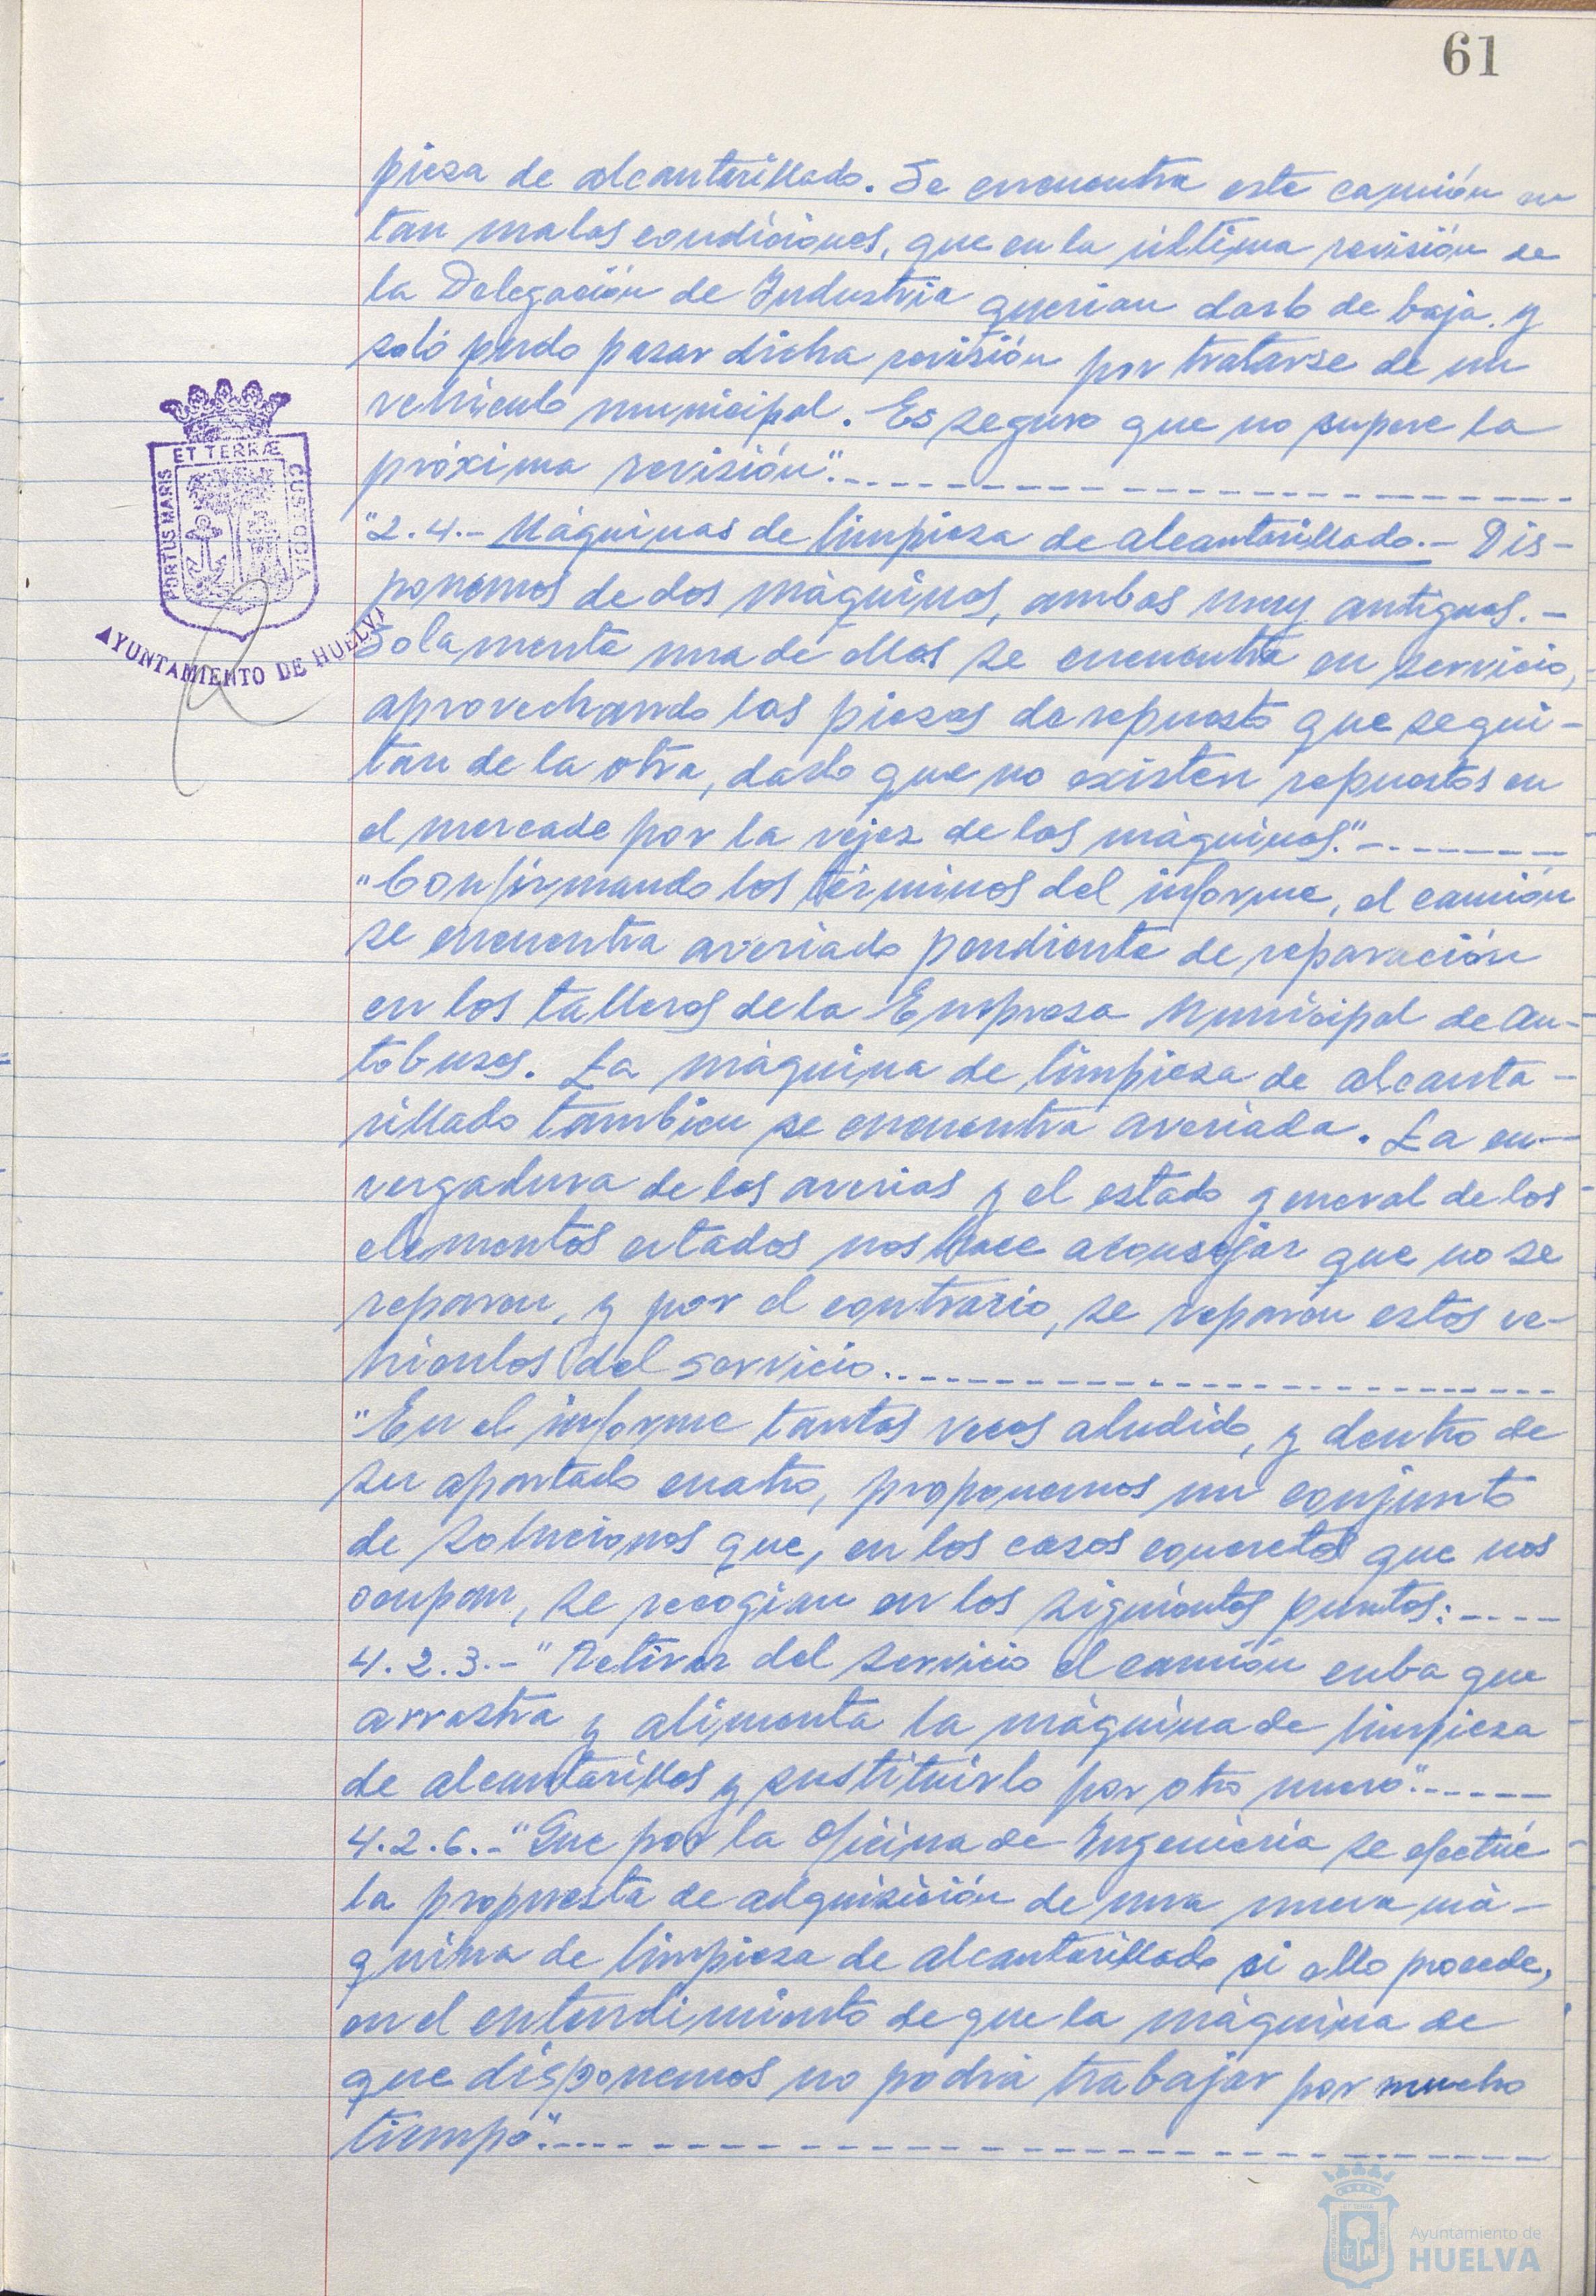 61
pieza de alcantarillado. Se encuentra este camión en
tan malas condiciones, que en la última revisión de
la Delegación de Industria querian darlo de baja, y
soló pudo pasar dicha revisión por tratarse de un
vehículo municipal. Es seguro que no supere la
próxima revisión".
"2.4.- Máquinas de limpieza de alcantarillado.- Dis-
ponemos de dos máquinas, ambas muy antiguas.-
Solamente una de ellas se encuentra en servicio,
aprovechando las piezas de repuesto que se qui-
tan de la otra, dado que no existen repuestos en
el mercado por la vejez de las máquinas."
"Confirmando los términos del informe, el camión
se encuentra averiado pendiente de reparación
en los talleres de la Empresa Municipal de Au-
tobuses. La máquina de limpieza de alcanta-
rillado tambien se encuentra averiada. La en-
vergadura de las averias y el estado general de los
elementos citados nos hace aconsejar que no se
reparen, y por el contrario, se reparen estos ve-
hiculos del servicio.
"En el informe tantas veces aludido, y dentro de
su apartado cuatro, proponemos un conjunto
de soluciones que, en los casos concretos que nos
ocupan, se recogian en los siguientes puntos:
4.2.3.- "Retirar del servicio el camión cuba que
arrastra y alimenta la máquina de limpieza
de alcantarillas y sustituirlo por otro nuevo".
4.2.6.- "Que por la Oficina de Ingeniería se efectúe
la propuesta de adquisición de una nueva má-
quina de limpieza de alcantarillado si ello procede,
en el entendimiento de que la máquina de
que disponemos no podrá trabajar por mucho
tiempo".
PORTUS MARIS ET TERRÆ CUSTODIA
AYUNTAMIENTO DE HUELVA
Ayuntamiento de
HUELVA